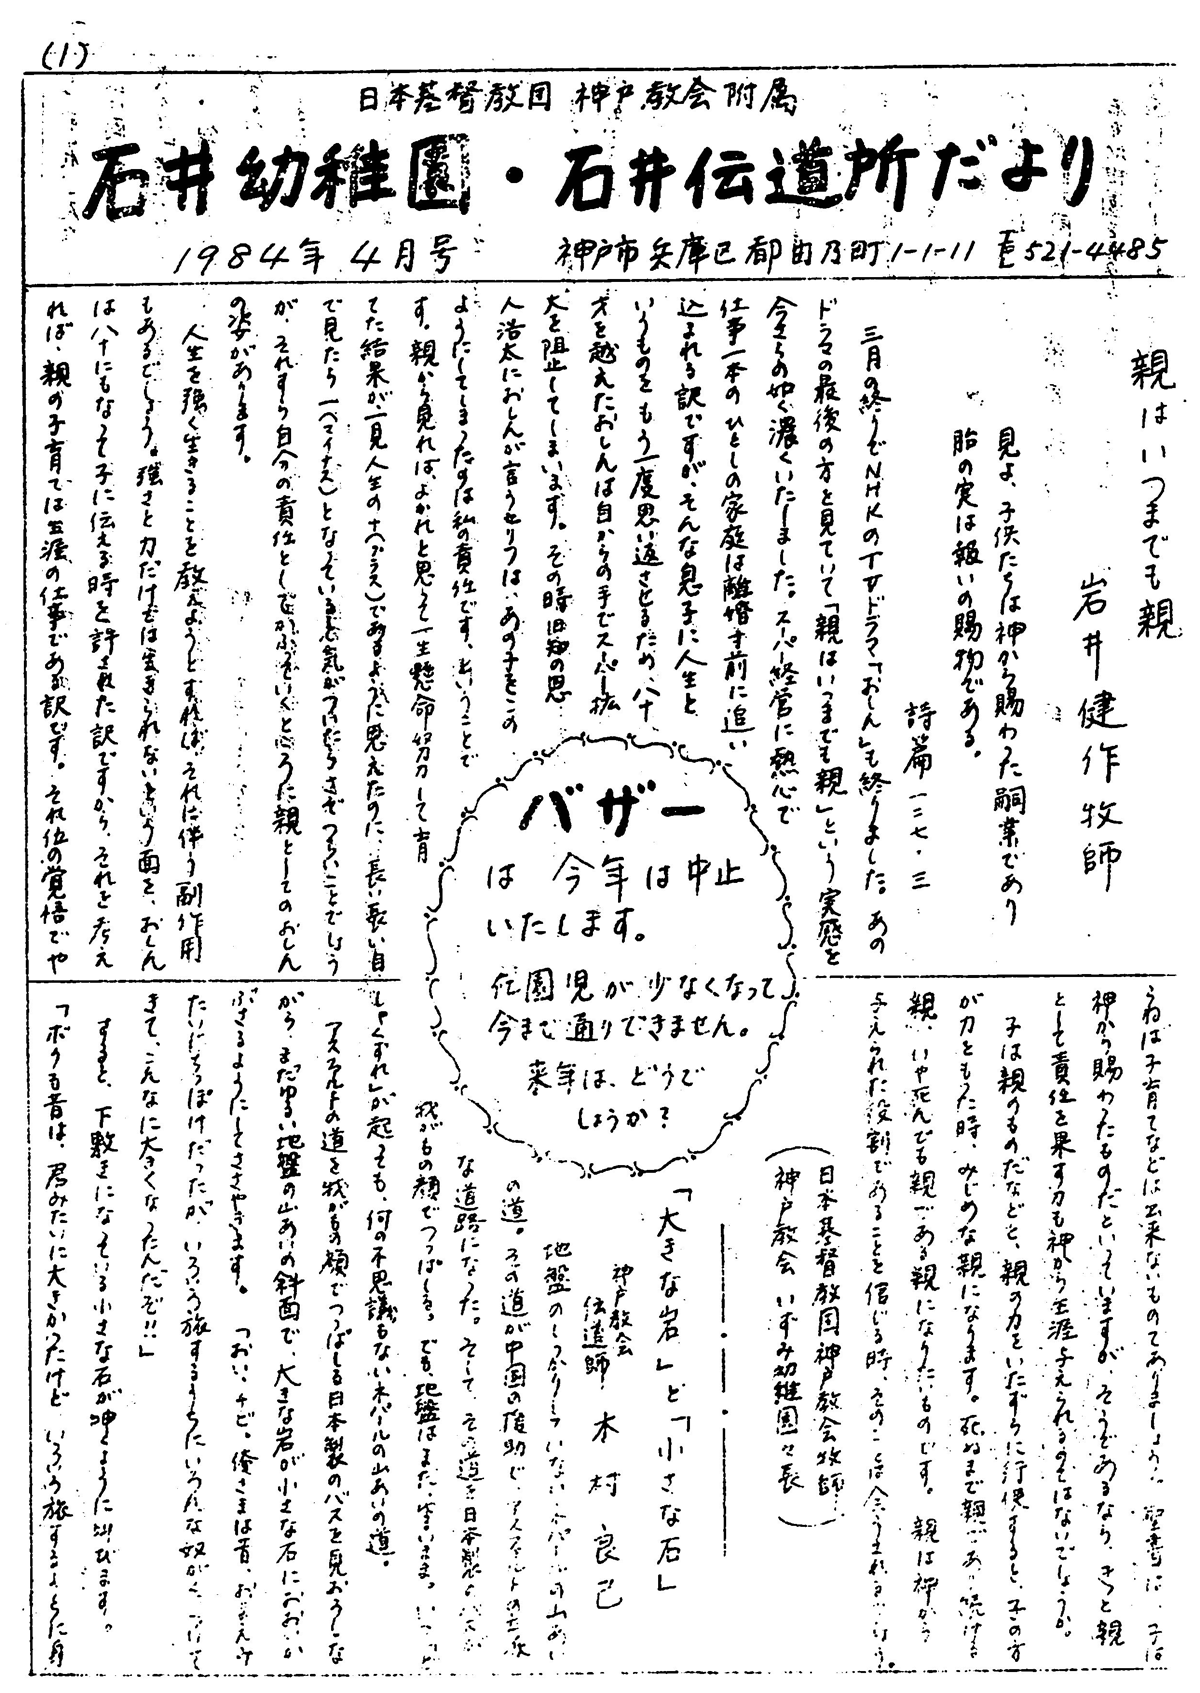 (1)
日本基督教団 神戸教会附属
石井幼稚園・石井伝道所だより
1984年 4月号
神戸市兵庫区都由乃町1-1-11 ℡521-4485
親はいつまでも親
岩井健作牧師
見よ、子供たちは神から賜わった嗣業であり
胎の実は報いの賜物である。
詩篇一二七・三
三月の終りでNHKのTVドラマ「おしん」も終りました。あの
ドラマの最後の方を見ていて「親はいつまでも親」という実感を
今さらの如く濃くいたしました。スーパー経営に熱心で
仕事一本のひとしの家庭は離婚寸前に追い
込まれる訳ですが、そんな息子に人生と
いうものをもう一度思い返させるため、八十
才を越えたおしんは自からの手でスーパー拡
大を阻止してしまいます。その時旧知の恩
人浩太におしんが言うセリフは、あの子をこの
ようにしてしまったのは私の責任です、ということで
す。親から見れば、よかれと思って一生懸命努力して育
てた結果が、一見人生の+(プラス)であるように思えたのに、長い長い目
で見たら-(マイナス)となっていると気がついたらさぞつらいことでしょう
が、それすら自分の責任としてかぶっていくところに親としてのおしん
の姿があります。
人生を強く生きることを教えようとすれば、それに伴う副作用
もあるでしょう。強さと力だけでは生きられないという面を、おしん
は八十にもなって子に伝える時を許された訳ですから、それを考え
れば、親の子育ては生涯の仕事である訳です。それ位の覚悟でや
バザー
は 今年は中止
いたします。
伝園児が少なくなって
今まで通りできません。
来年は、どうで
しょうか?
らねば子育てなどは出来ないものでありましょう。聖書は、子は
神から賜わったものだといっていますが、そうであるなら、きっと親
として責任を果す力も神から生涯与えられるのではないでしょうか。
子は親のものだなどと、親の力をいたずらに行使すると、子の方
が力をもった時、みじめな親になります。死ぬまで親であり続ける
親、いや死んでも親である親になりたいものです。親は神から
与えられた役割であることを信じる時、そのことは
(日本基督教団神戸教会牧師
神戸教会いずみ幼稚園々長)
「大きな岩」と「小さな石」
神戸教会
伝道師 木村良己
地盤のしっかりしていないネパールの山あい
の道。その道が中国の援助で、アスファルトの立派
な道路になった。そして、その道を日本製のバスが
我がもの顔でつっぱしる。でも、地盤はまだ、ゆるいまま。いつ
しゃくずれ」が起っても、何の不思議もないネパールの山あいの道。
アスファルトの道を我がもの顔でつっぱしる日本製のバスを見おろしな
がら、まだゆるい地盤の山あいの斜面で、大きな岩が小さな石におおいか
ぶさるようにしてささやきます。「おい、チビ。俺さまは昔、おまえみ
たいにちっぽけだったが、いろいろ旅するうちにいろんな奴がくっついて
きて、こんなに大きくなったんだぞ!!」
すると、下敷きになっている小さな石が呻くように叫びます。
「ボクも昔は、君みたいに大きかったけど、いろいろ旅するうちに身